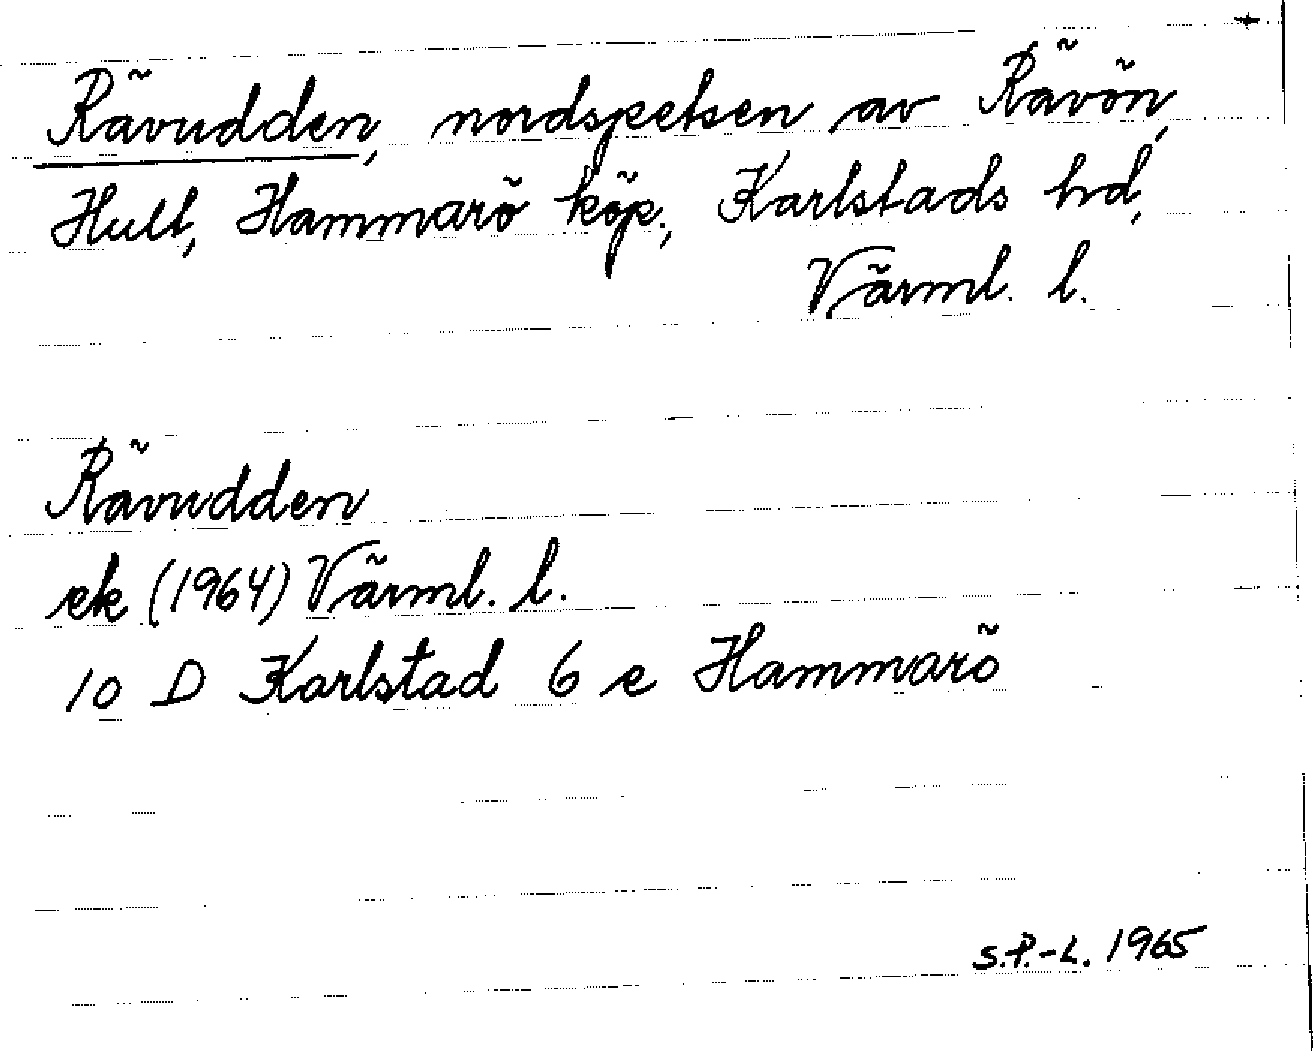 Rävudden, nordspetsen av Rävön,
Hult, Hammarö köp., Karlstads hd,
Värml. l.
Rävudden
ek (1964) Värml. l.
10 D Karlstad 6 e Hammarö
S.P.-L. 1965